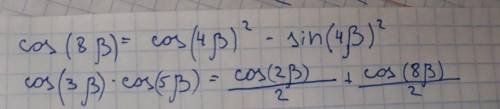 cos(8β) = cos(4β)² - sin(4β)²
cos(3β)·cos(5β) = cos(2β)/2 + cos(8β)/2